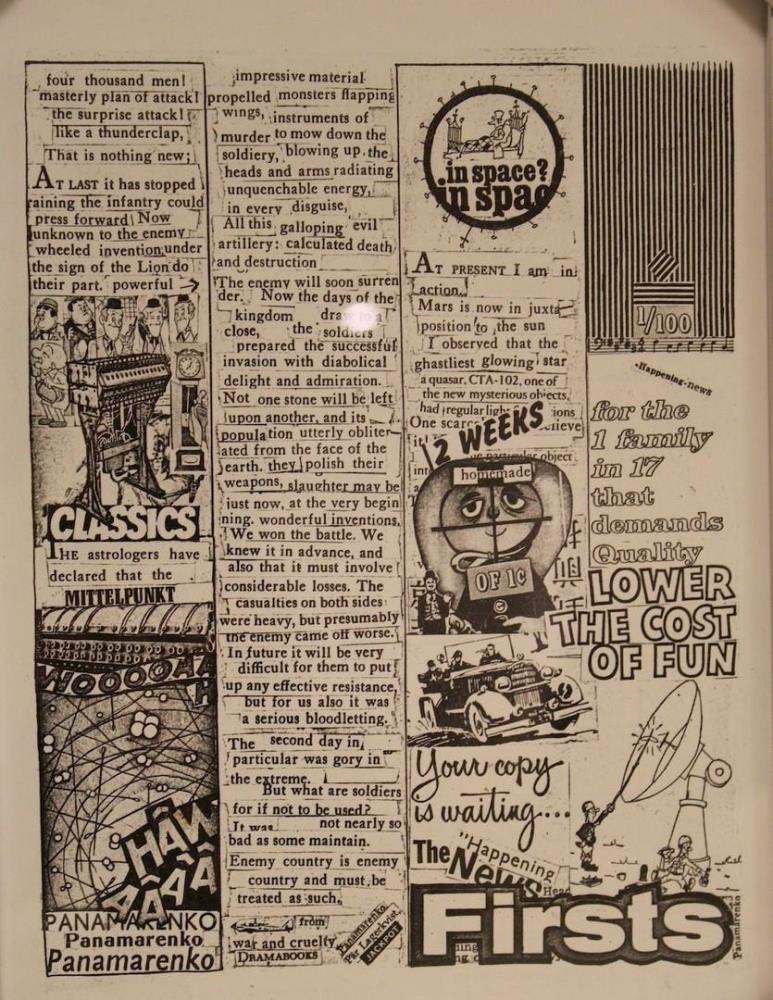 four thousand men!
masterly plan of attack!
the surprise attack!
like a thunderclap,
That is nothing new;
AT LAST it has stopped
raining the infantry could
press forward Now
unknown to the enemy
wheeled invention under
the sign of the Lion do
their part. powerful
CLASSICS
THE astrologers have
declared that the
MITTELPUNKT
WOOOOAA
H
HÂW
ÂÂ
AÂÂ
PANAMARENKO
Panamarenko
Panamarenko
impressive material
propelled monsters flapping
wings, instruments of
murder to mow down the
soldiery, blowing up the
heads and arms radiating
unquenchable energy,
in every disguise,
All this galloping evil
artillery: calculated death
and destruction
The enemy will soon surren
der. Now the days of the
kingdom draw to a
close, the soldiers
prepared the successful
invasion with diabolical
delight and admiration.
Not one stone will be left
upon another, and its
population utterly obliter
ated from the face of the
earth. they polish their
weapons, slaughter may be
just now, at the very begin
ning. wonderful inventions,
We won the battle. We
knew it in advance, and
also that it must involve
considerable losses. The
casualties on both sides
were heavy, but presumably
the enemy came off worse.
In future it will be very
difficult for them to put
up any effective resistance,
but for us also it was
a serious bloodletting.
The second day in
particular was gory in
the extreme.
But what are soldiers
for if not to be used?
It was not nearly so
bad as some maintain.
Enemy country is enemy
country and must be
treated as such,
from
war and cruelty
DRAMABOOKS
Panamarenko.
Pär Lagerkvist.
JACKPOT
in space?
in spac
AT PRESENT I am in
action.
Mars is now in juxta
position to the sun
I observed that the
ghastliest glowing star
a quasar, CTA-102, one of
the new mysterious objects,
had regular light ions
One scarc elieve
it
object
int
2 WEEKS
homemade
OF 1¢
Your copy
is waiting....
The "Happening
News
Head
Firsts
ning
Panamarenko
1/100
Happening-news
for the
1 family
in 17
that
demands
Quality
LOWER
THE COST
OF FUN